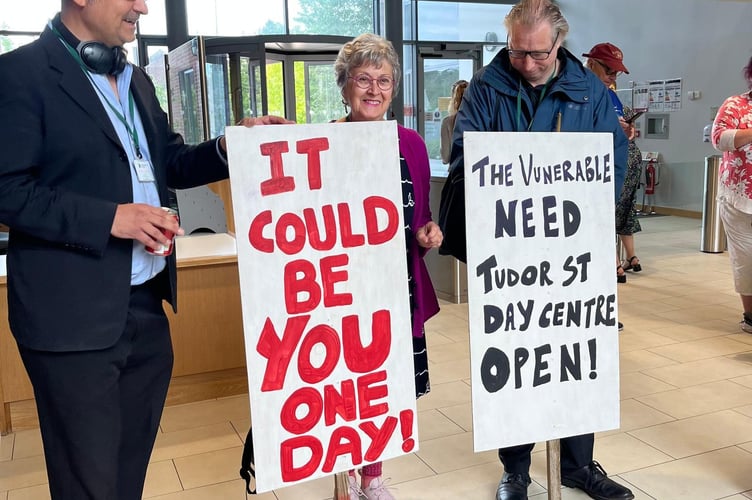 IT
COULD
BE
YOU
ONE
DAY!
THE VUNERABLE
NEED
TUDOR ST
DAY CENTRE
OPEN!